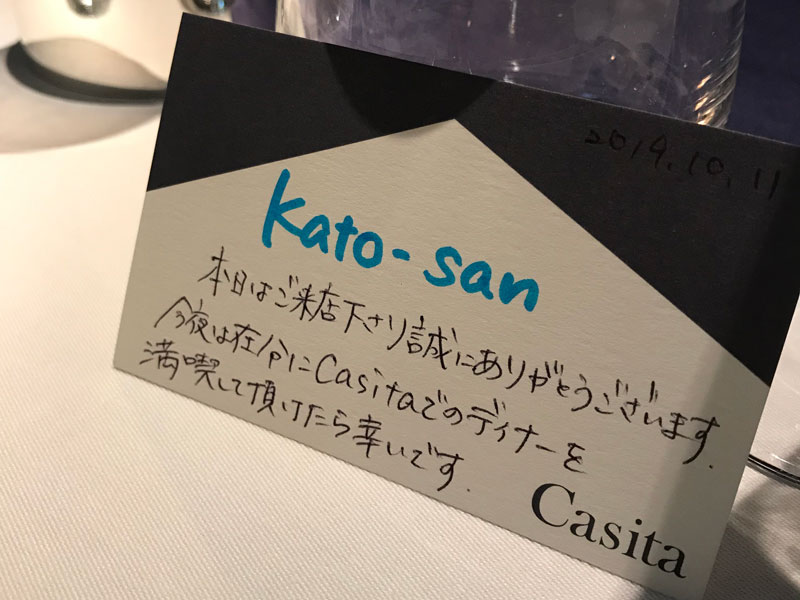 2019.10.11
Kato-san
本日はご来店下さり誠にありがとうございます.
今夜は在分にCasitaでのディナーを
満喫して頂けたら幸いです.
Casita